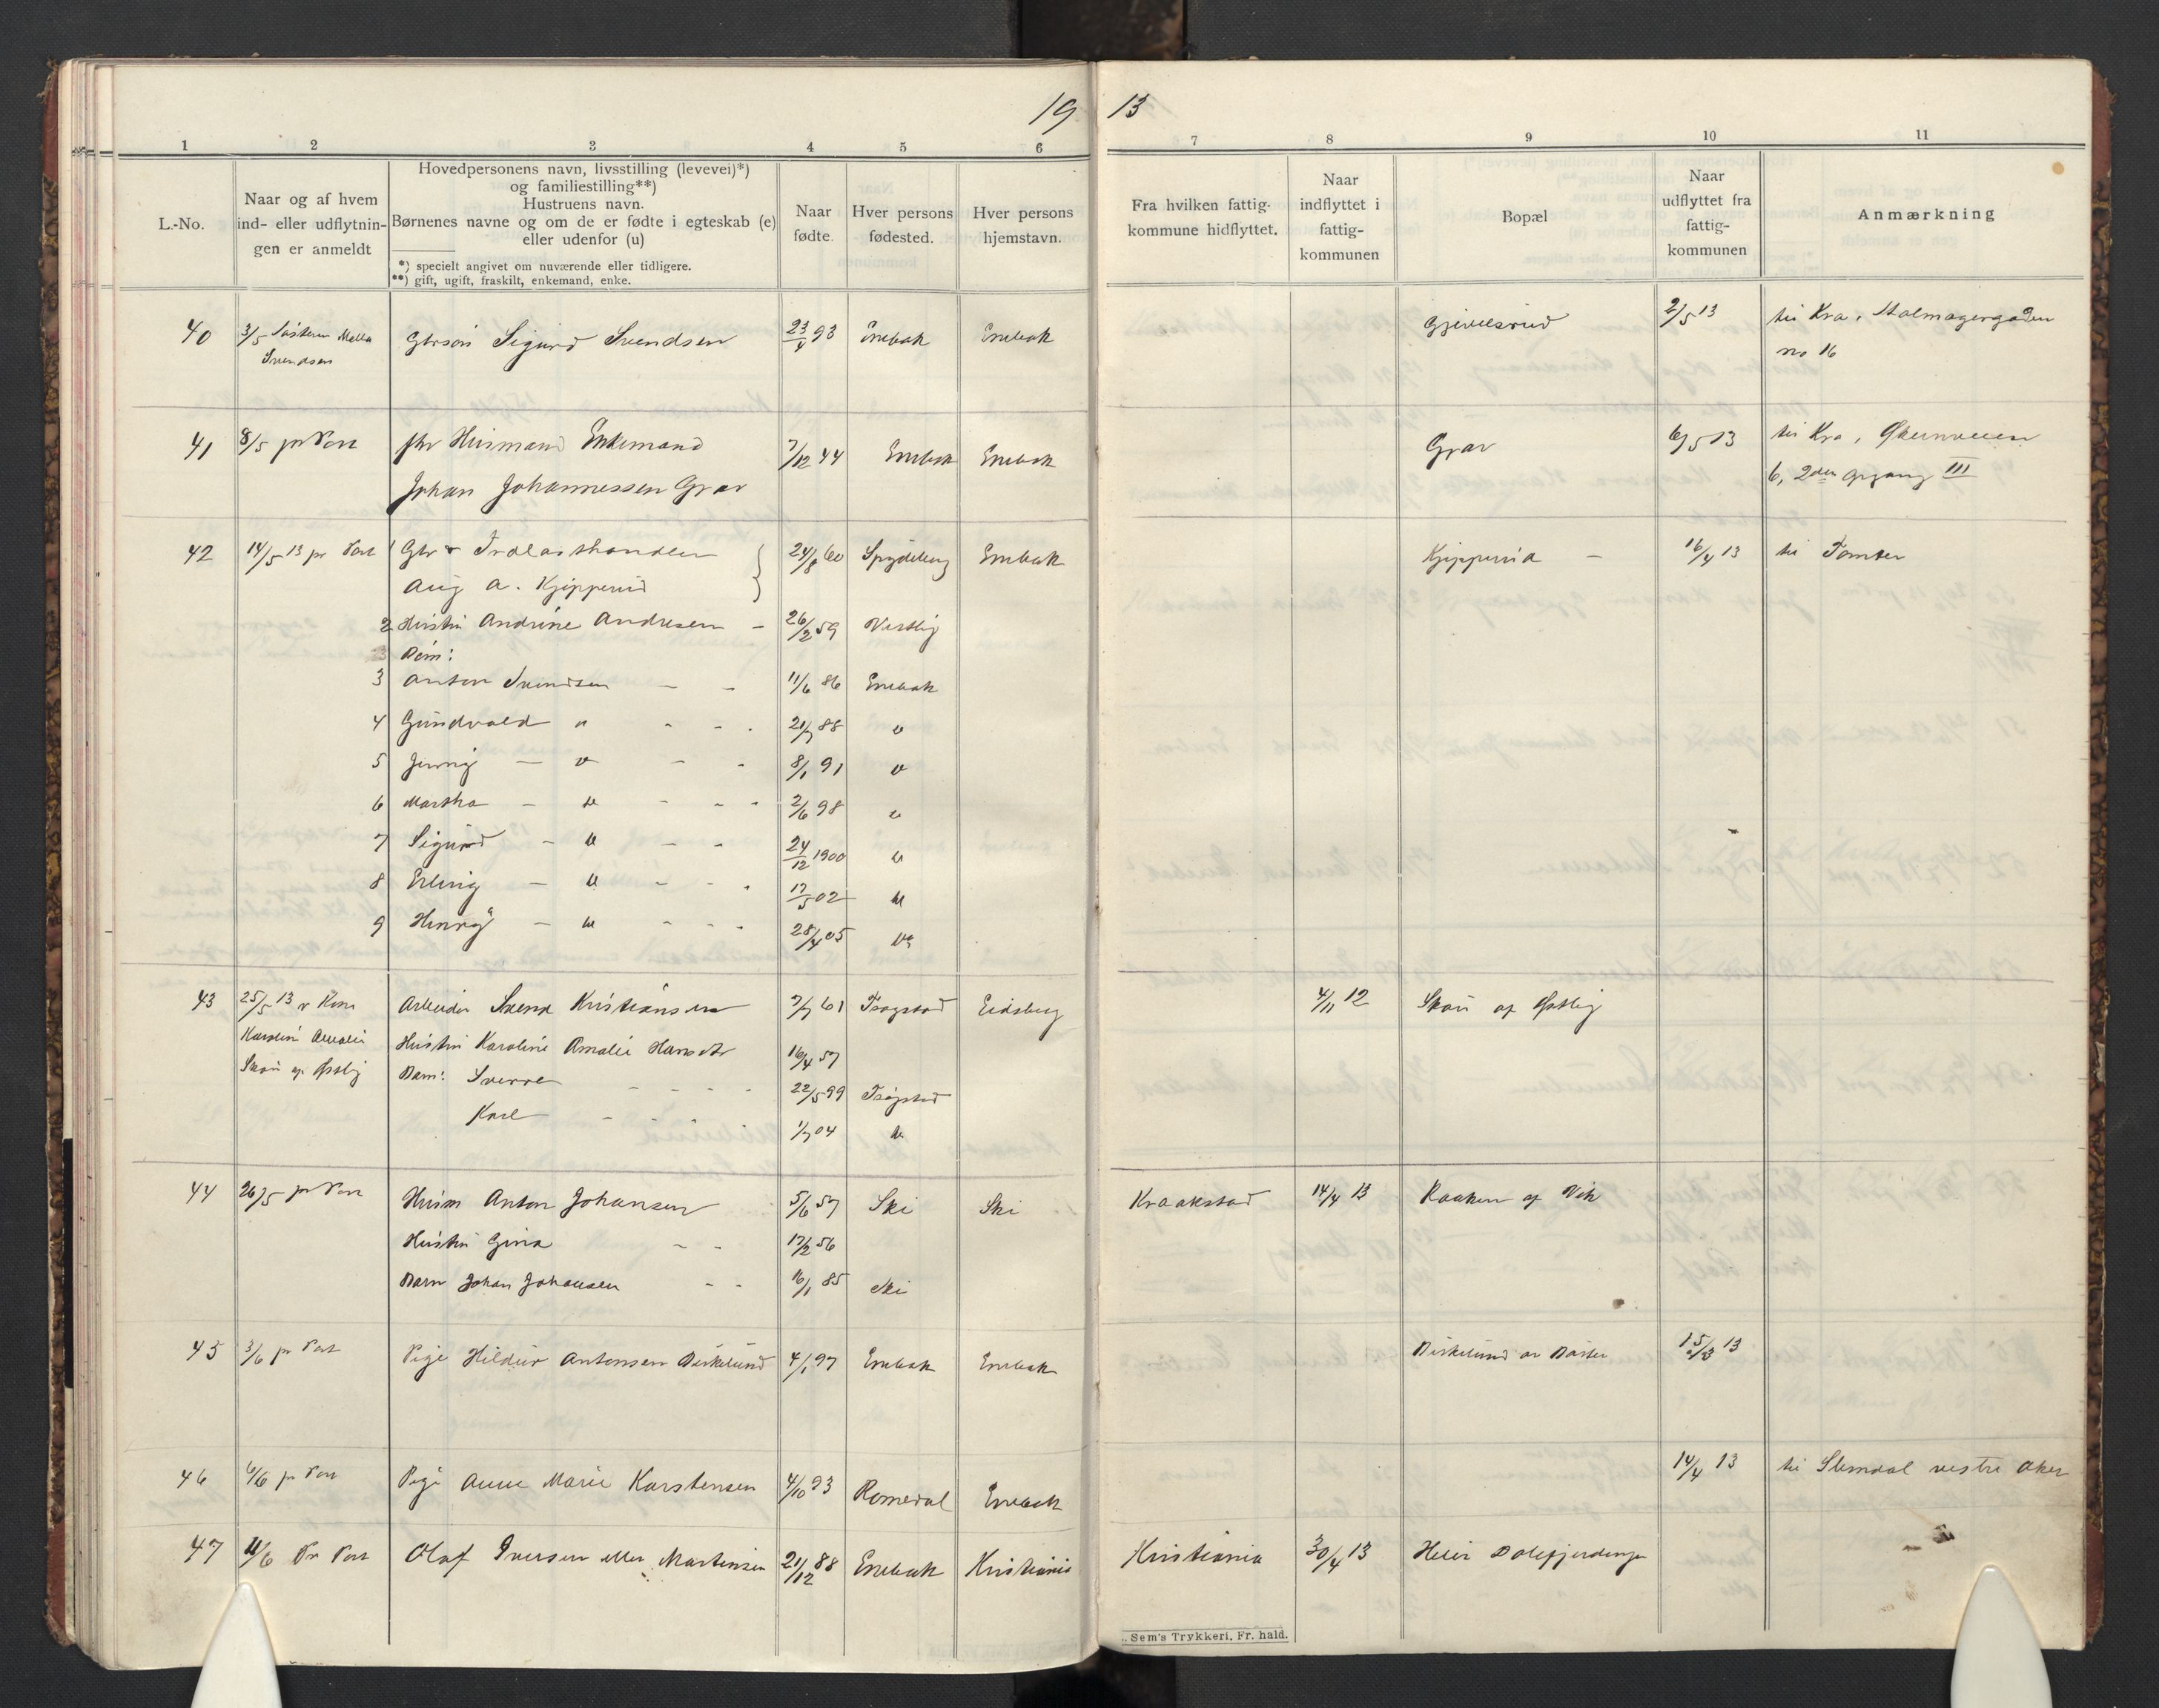 19 13
1 2 3 4 5 6 7 8 9 10 11
L.-No.
Naar og af hvem
ind- eller udflytnin-
gen er anmeldt
Hovedpersonens navn, livsstilling (levevei)*)
og familiestilling**)
Hustruens navn.
Børnenes navne og om de er fødte i egteskab (e)
eller udenfor (u)
*) specielt angivet om nuværende eller tidligere.
**) gift, ugift, fraskilt, enkemand, enke.
Naar
fødte.
Hver persons
fødested.
Hver persons
hjemstavn.
Fra hvilken fattig-
kommune hidflyttet.
Naar
indflyttet i
fattig-
kommunen
Bopæl
Naar
udflyttet fra
fattig-
kommunen
Anmærkning
40 3/5 Søsteren Svendsen Gbrsøn Sigurd Svendsen 23/4 93 Enebak Enebak 2/5 13 til Kra,
no 16
41 8/5 pr Post fhv Husmand Enkemand 7/12 44 Enebak Enebak Grav 6/5 13 til Kra,
Johan Johannessen Grav 6, 2den opgang III
42 14/5 13 pr Post 1 Gbr & Trælasthandler 24/8 60 Spydeberg Enebak Kjipperud - 16/4 13 til Tomter
Aug A. Kjipperud
2 Hustru Andrine Andresen - 26/2 59 Vestby
Børn:
3 Anton Svendsen - - 11/6 86 Enebak
4 Gundvald " - - - 21/7 88 "
5 Jenny - " - - 8/1 91 "
6 Martha - " - - - 2/6 98 "
7 Sigurd - " - - 24/12 1900 "
8 Erling - " - - - 17/5 02 "
9 Henry - " - - - 28/4 05 "
43 25/5 13 v Kone Arbeider Svend Kristiansen 7/7 61 Trøgstad Eidsberg 4/11 12 Skou af Østby
Karoline Amalie Hustru Karoline Amalie Hansdtr 16/4 57
Skou af Østby Barn: Sverre - - - - 22/5 99 Trøgstad
Karl - - - 1/7 04 "
44 26/5 pr Post Husm Anton Johansen 5/6 57 Ski Ski Kraakstad 14/4 13 Raaken af Vik
Hustru Gina - - 17/2 56
Barn Johan Johansen - - 16/1 85 Ski
45 3/6 pr Post Pige Hildur Antonsen Birkelund 4/1 97 Enebak Enebak Birkelund av Børter 13
46 6/6 pr Post Pige Anne Marie Karstensen 4/10 93 Romedal Enebak 14/4 13 til Slemdal vestre Aker
47 11/6 Pr Post Olaf Iversen eller Martinsen 21/12 88 Enebak Kristiania Kristiania 30/4 13 Dalefjerdingen
Sem's Trykkeri, Fr.hald.